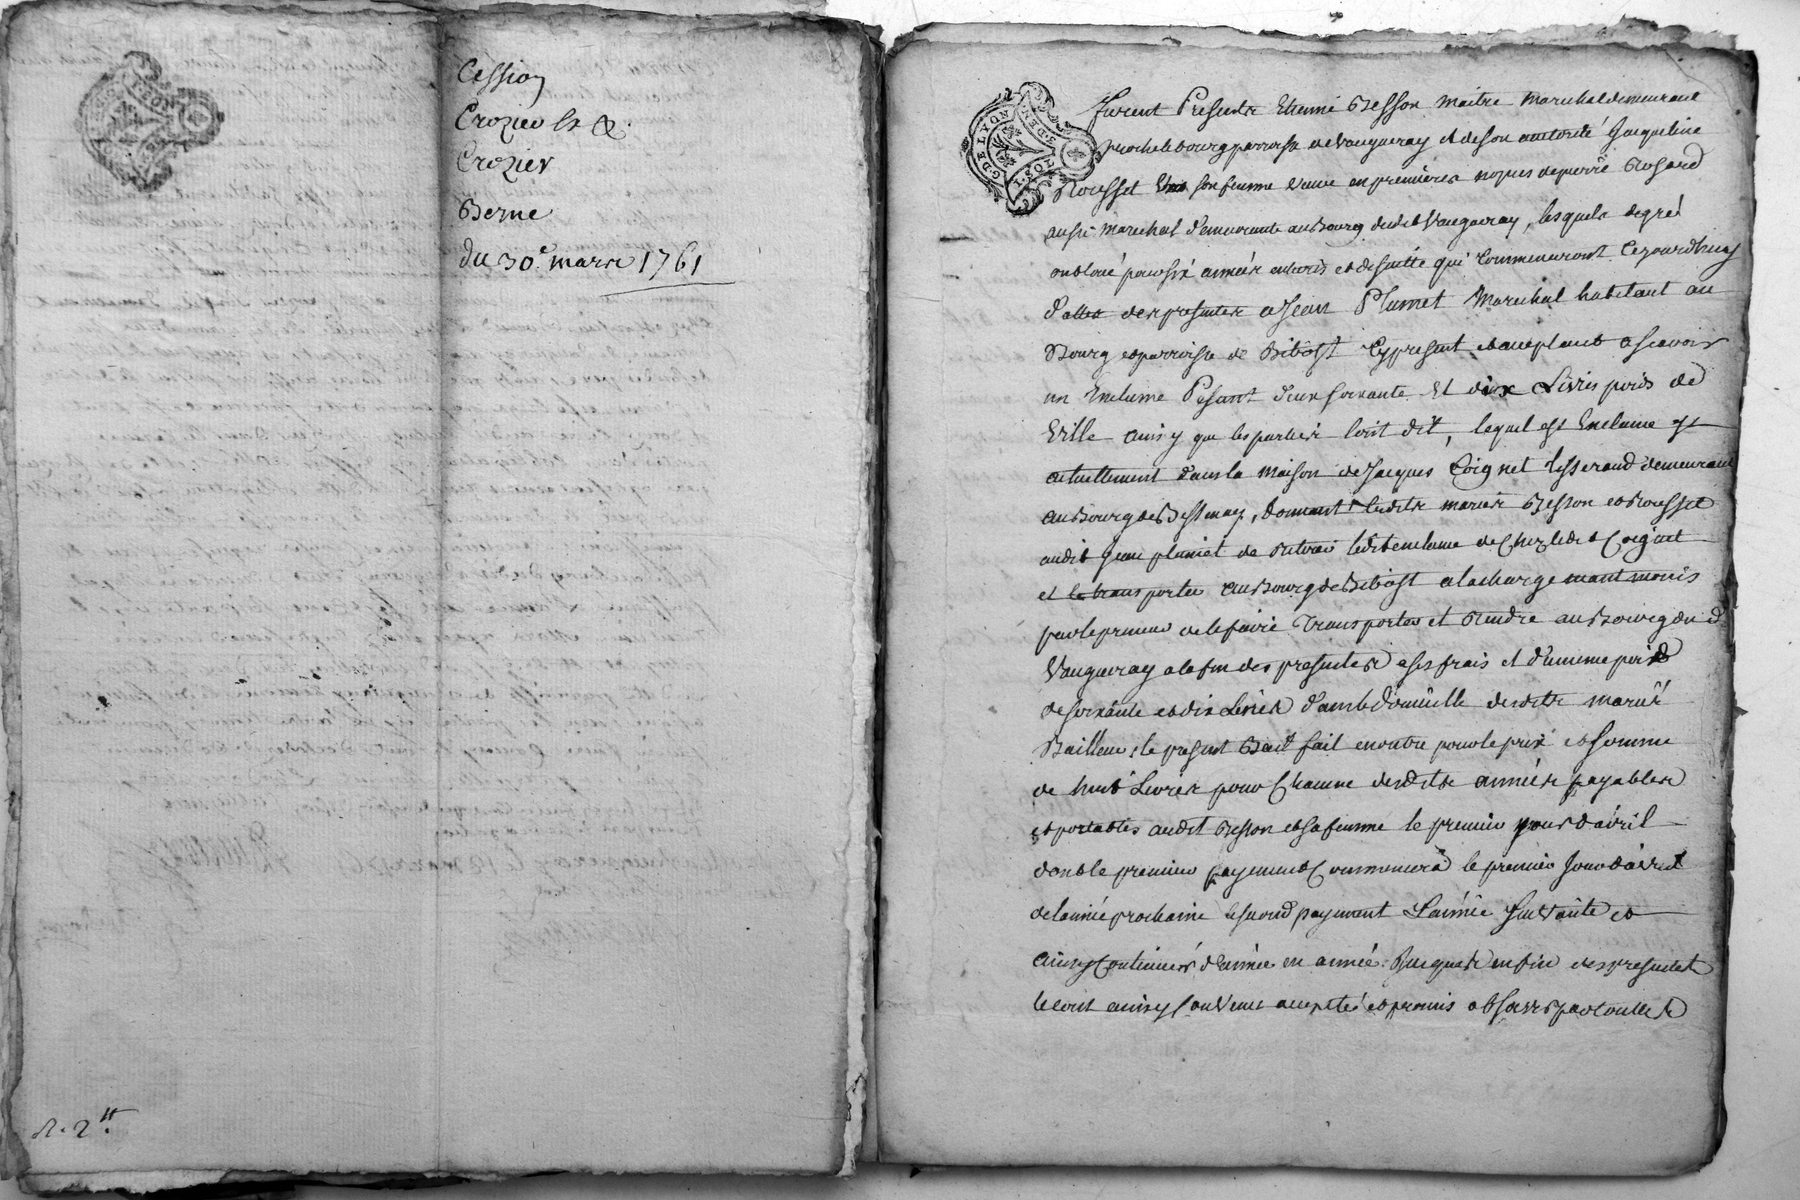 Cession
Crozier
Crozier
Berne
du 30e. mars 1761
R. 2tt.
G. DE LYON
1. SOL
DEN
Furent Presents Etienne Besson maitre marechal demeurant
proche le bourg parroisse de Vaugneray et de son authorité Jacqueline
Rousset son femme veuve en premieres nopces de pierre Rosard
aussi marechal demeurants au Bourg dudit Vaugneray, lesquels de gré
ont loué pour six années entieres et de suitte qui commenceront cejourdhuy
datte des presentes a Jean Plumet Marechal habitant au
Bourg et parroisse de Bibost cy present et acceptant a scavoir
un Enclume Pesant deux soixante Et dix Livres poids de
Ville ainsy que les parties l'ont dit, lequel est Enclume est
actuellement dans la maison de Jacques Coignet tisserand demeurant
au Bourg de Bessenay, donnant lesdits mariés Besson et Rousset
audit Jean plumet de retirer ledit enclume de chez ledit Coignet
et le transporter au Bourg de Bibost a la charge
par le preneur de le faire Transporter et Rendre au Bourg dud
Vaugneray a la fin des presentes a ses frais et du meme poids
de soixante et dix Livres desdits mariés
Bailleurs, le present Bail fait en outre pour le prix et somme
de huit Livres pour Chacune desdittes années payables
et portables audit Besson et sa femme le premier jour d'avril
dont le premier payement Commencera le premier Jour d'avril
de l'année prochaine le second payement L'année suivante et
ainsy Continuer d'année en année Jusques en fin des presentes
le tout ainsy Convenu accepté et promis observer par toutes